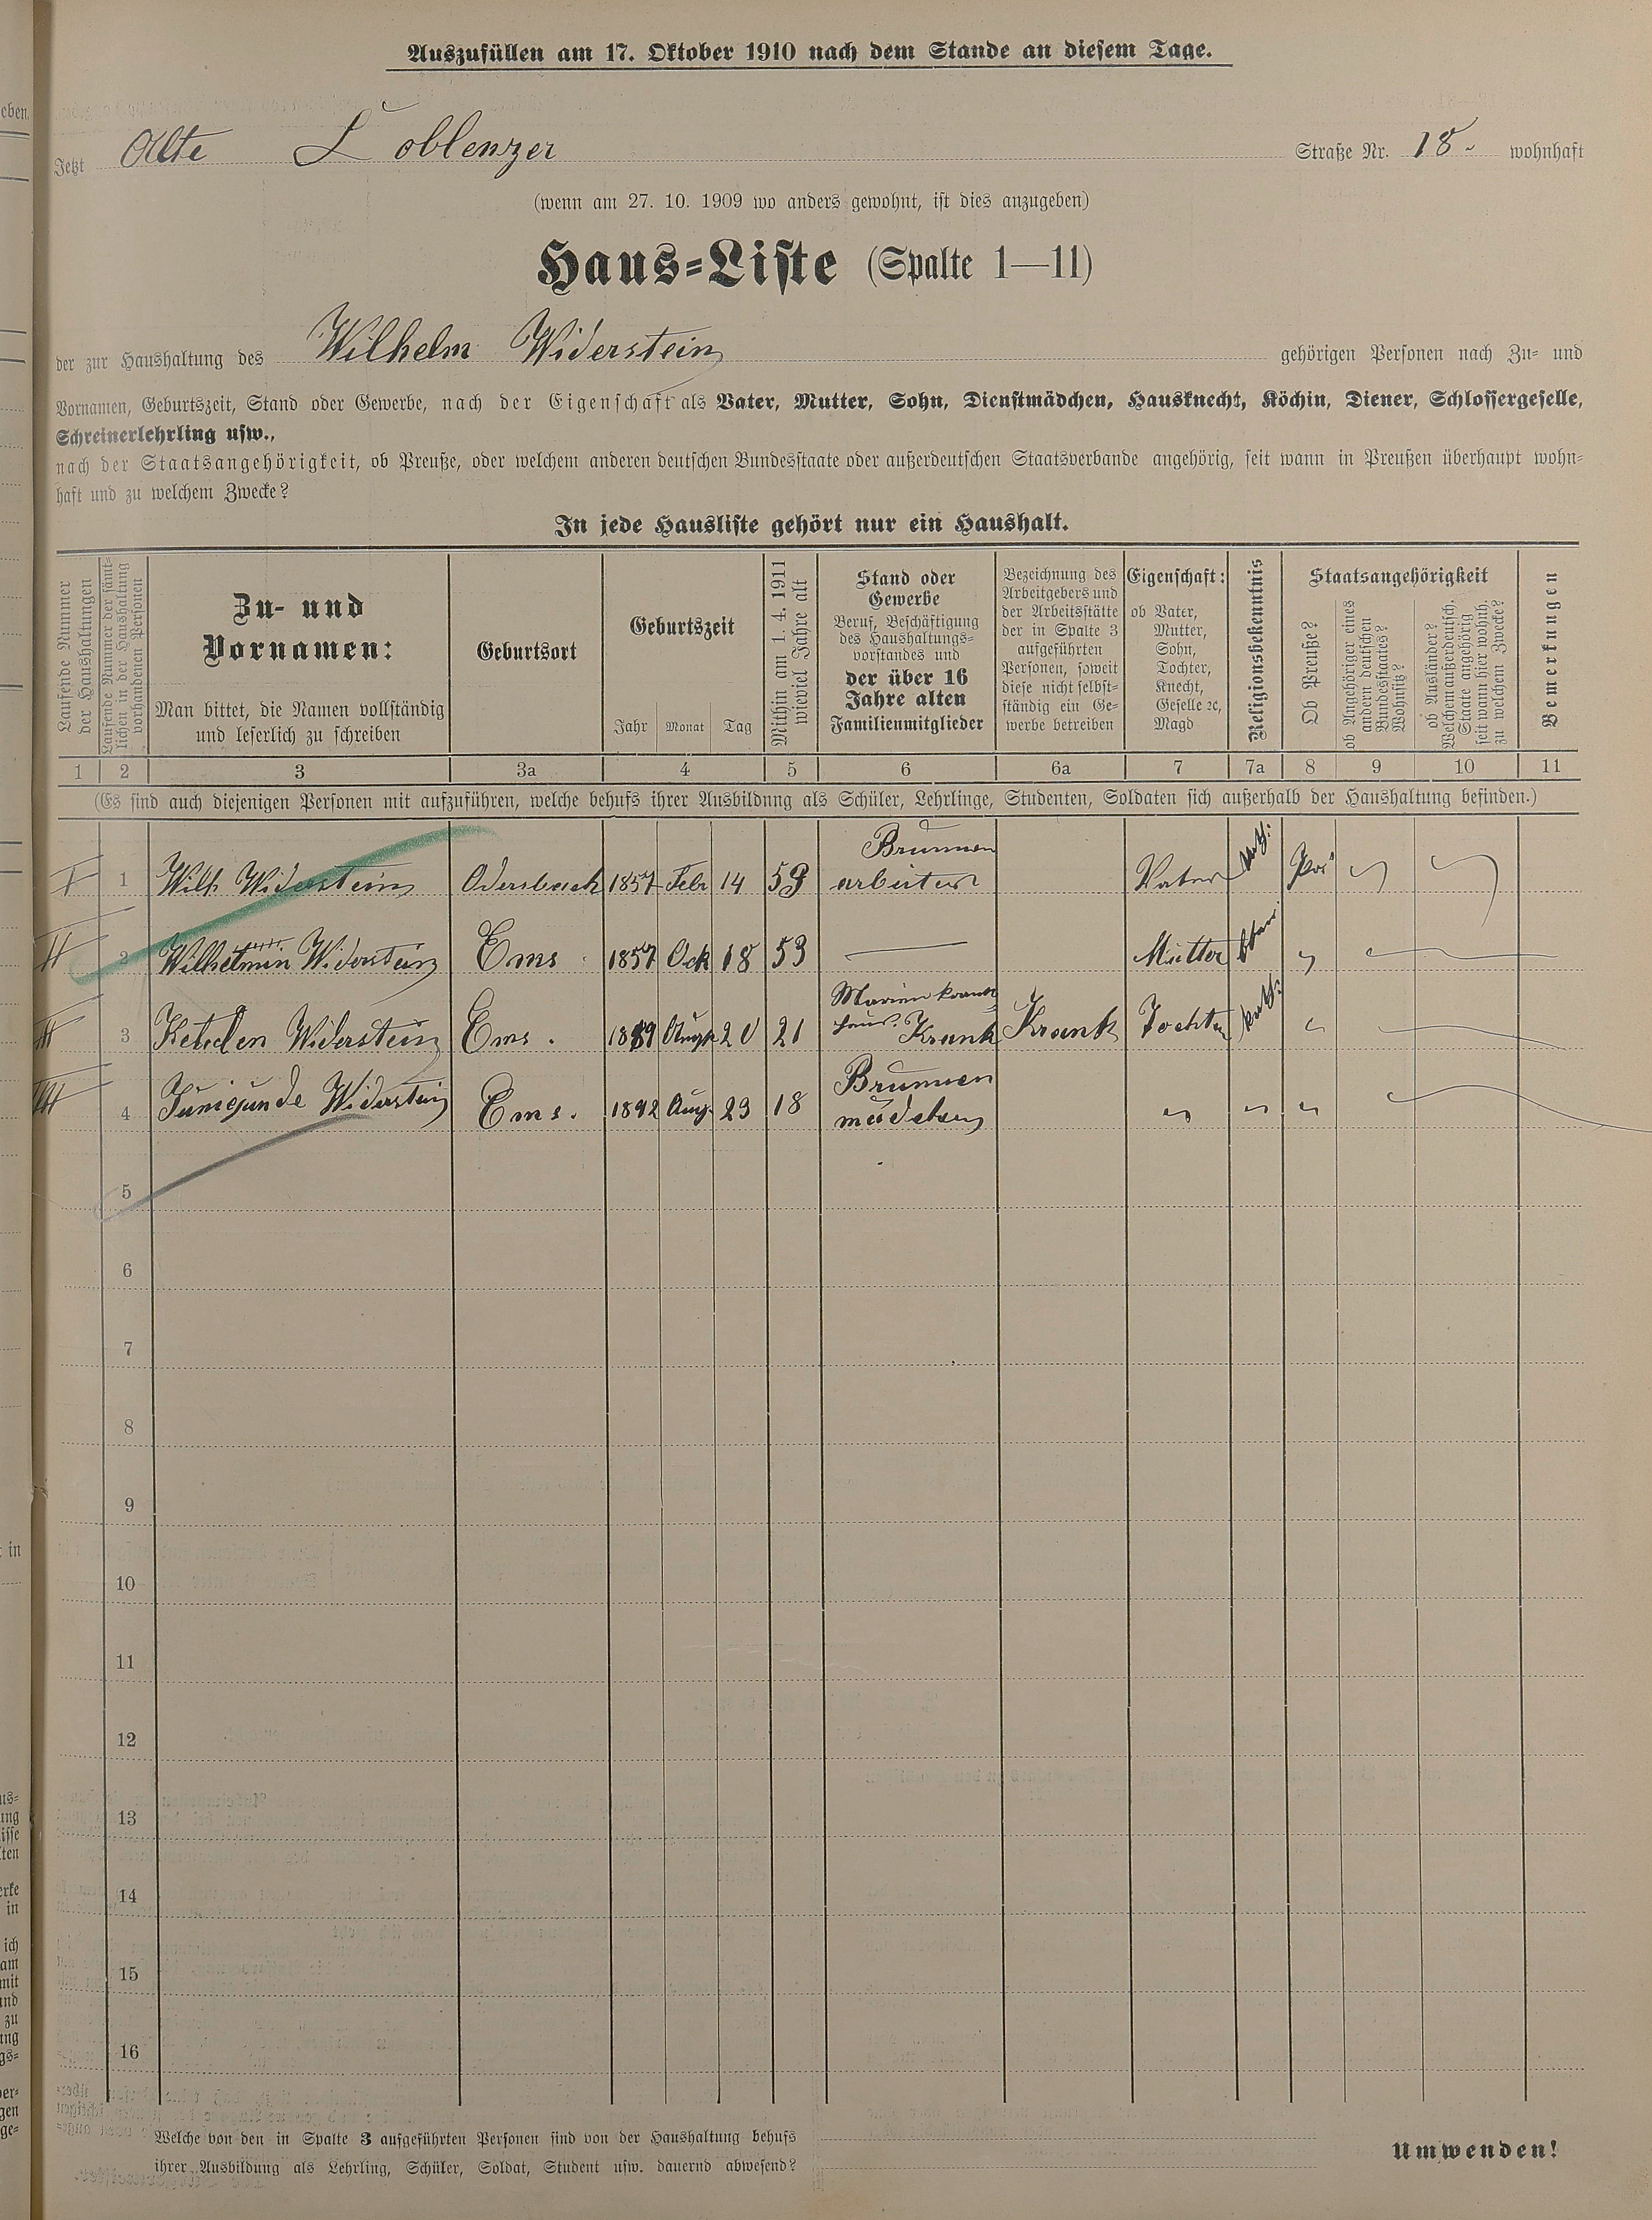 Auszufüllen am 17. Oktober 1910 nach dem Stande an diesem Tage.
Jetzt Alte Coblenzer Straße Nr. 18. wohnhaft
(wenn am 27. 10. 1909 wo anders gewohnt, ist dies anzugeben)
Haus-Liste (Spalte 1—11)
der zur Haushaltung des Wilhelm Widerstein gehörigen Personen nach Zu- und
Vornamen, Geburtszeit, Stand oder Gewerbe, nach der Eigenschaft als Vater, Mutter, Sohn, Dienstmädchen, Hausknecht, Köchin, Diener, Schlossergeselle,
Schreinerlehrling usw.,
nach der Staatsangehörigkeit, ob Preuße, oder welchem anderen deutschen Bundesstaate oder außerdeutschen Staatsverbande angehörig, seit wann in Preußen überhaupt wohn-
haft und zu welchem Zwecke?
In jede Hausliste gehört nur ein Haushalt.
Laufende Nummer
der Haushaltungen
Laufende Nummer der sämt-
lichen in der Haushaltung
vorhandenen Personen
Zu- und
Vornamen:
Man bittet, die Namen vollständig
und leserlich zu schreiben
Geburtsort
Geburtszeit
Jahr Monat Tag
Mithin am 1. 4. 1911
wieviel Jahre alt
Stand oder
Gewerbe
Beruf, Beschäftigung
des Haushaltungs-
vorstandes und
der über 16
Jahre alten
Familienmitglieder
Bezeichnung des
Arbeitgebers und
der Arbeitsstätte
der in Spalte 3
aufgeführten
Personen, soweit
diese nicht selbst-
ständig ein Ge-
werbe betreiben
Eigenschaft:
ob Vater,
Mutter,
Sohn,
Tochter,
Knecht,
Geselle ꝛc,
Magd
Religionsbekenntnis
Staatsangehörigkeit
Ob Preuße?
ob Angehöriger eines
andern deutschen
Bundesstaates?
Wohnsitz?
ob Ausländer?
Welchem außerdeutsch.
Staate angehörig
seit wann hier wohnh.
zu welchem Zwecke?
Bemerkungen
1 2 3 3a 4 5 6 6a 7 7a 8 9 10 11
(Es sind auch diejenigen Personen mit aufzuführen, welche behufs ihrer Ausbildung als Schüler, Lehrlinge, Studenten, Soldaten sich außerhalb der Haushaltung befinden.)
Brunnen
1 Wilh Widerstein Odersbach 1857 Febr 14 arbeiter Vater kath:
2 Wilhelmin Widerstein Ems 1857 Ock 18 53 — Mutter
Marien kranke
3 Widerstein Ems. 1889 20 21 haus. Krank Krank Tochter kath:
Brunnen
4 Widerstein Ems. 1892 Aug. 23 18 mädchen " " "
5
6
7
8
9
10
11
12
13
14
15
16
Welche von den in Spalte 3 aufgeführten Personen sind von der Haushaltung behufs
ihrer Ausbildung als Lehrling, Schüler, Soldat, Student usw. dauernd abwesend?
Umwenden!